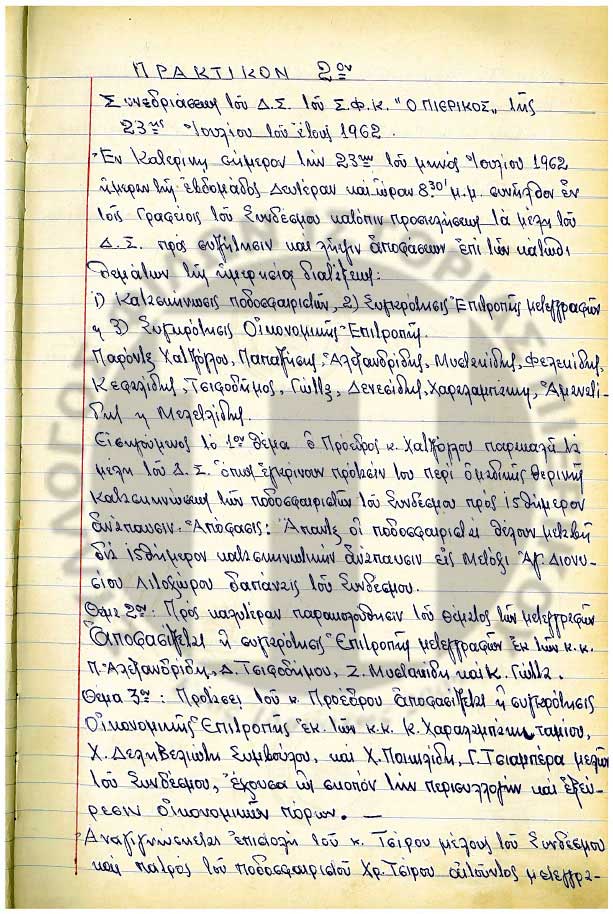 ΠΡΑΚΤΙΚΟΝ 2ον
Συνεδριάσεως τοῦ Δ.Σ. τοῦ Σ.Φ.Κ. "Ο ΠΙΕΡΙΚΟΣ" τῆς
23ης Ἰουλίου τοῦ ἔτους 1962.
Ἐν Κατερίνῃ σήμερον τὴν 23ην τοῦ μηνὸς Ἰουλίου 1962
ἡμέραν τῆς ἑβδομάδος Δευτέραν καὶ ὥραν 8.30' μ.μ. συνῆλθον ἐν
τοῖς Γραφείοις τοῦ Συνδέσμου κατόπιν προσκλήσεως τὰ μέλη τοῦ
Δ.Σ. πρὸς συζήτησιν καὶ λῆψιν ἀποφάσεων ἐπὶ τῶν κάτωθι
θεμάτων τῆς ἡμερησίας διατάξεως:
1) Κατασκήνωσις ποδοσφαιριστῶν, 2) Συγκρότησις Ἐπιτροπῆς μετεγγραφῶν
3) Συγκρότησις Οἰκονομικῆς Ἐπιτροπῆς.
Παρόντες Χατζόγλου, Παπαζήσης, Ἀλεξανδρίδης, Μυστακίδης, Φελεκίδης,
Κεφαλίδης, Τσιφοδήμος, Γῶττας, Δενεσίδης, Χαραλαμπίκης, Ἀμανατί-
δης Μελετλίδης.
Εἰσηγούμενος τὸ 1ον θέμα ὁ Πρόεδρος κ. Χατζόγλου παρακαλεῖ τὰ
μέλη τοῦ Δ.Σ. ὅπως ἐγκρίνουν πρότασίν του περὶ ὁμαδικῆς θερινῆς
κατασκηνώσεως τῶν ποδοσφαιριστῶν τοῦ Συνδέσμου πρὸς 15θήμερον
ἀνάπαυσιν. Ἀπόφασις: Ἅπαντες οἱ ποδοσφαιρισταὶ θέλουν μεταβῆ
διὰ 15θήμερον κατασκηνωτικὴν ἀνάπαυσιν εἰς Μετόχι Ἁγ. Διονυ-
σίου Λιτοχώρου δαπάναις τοῦ Συνδέσμου.
Θέμα 2ον: Πρὸς καλυτέραν παρακολούθησιν τοῦ θέματος τῶν μετεγγραφῶν
ἀποφασίζεται ἡ συγκρότησις Ἐπιτροπῆς μετεγγραφῶν ἐκ τῶν κ.κ.
Π. Ἀλεξανδρίδη, Δ. Τσιφοδήμου, Σ. Μυστακίδη καὶ Κ. Γῶττα.
Θέμα 3ον: Προτάσει τοῦ κ. Προέδρου ἀποφασίζεται ἡ συγκρότησις
Οἰκονομικῆς Ἐπιτροπῆς ἐκ τῶν κ.κ. κ. Χαραλαμπίκη ταμίου,
Χ. Δεληβελιώτη Συμβούλου, καὶ Χ. Ποικιλίδη, Γ. Τσιαμπέρα μελῶν
τοῦ Συνδέσμου, ἔχουσα ὡς σκοπὸν τὴν περισυλλογὴν καὶ ἐξεύ-
ρεσιν οἰκονομικῶν πόρων. —
Ἀναγιγνώσκεται ἐπιστολὴ τοῦ κ. Τσίρου μέλους τοῦ Συνδέσμου
καὶ πατρὸς τοῦ ποδοσφαιριστοῦ Χρ. Τσίρου αἰτοῦντος μετεγγρα-